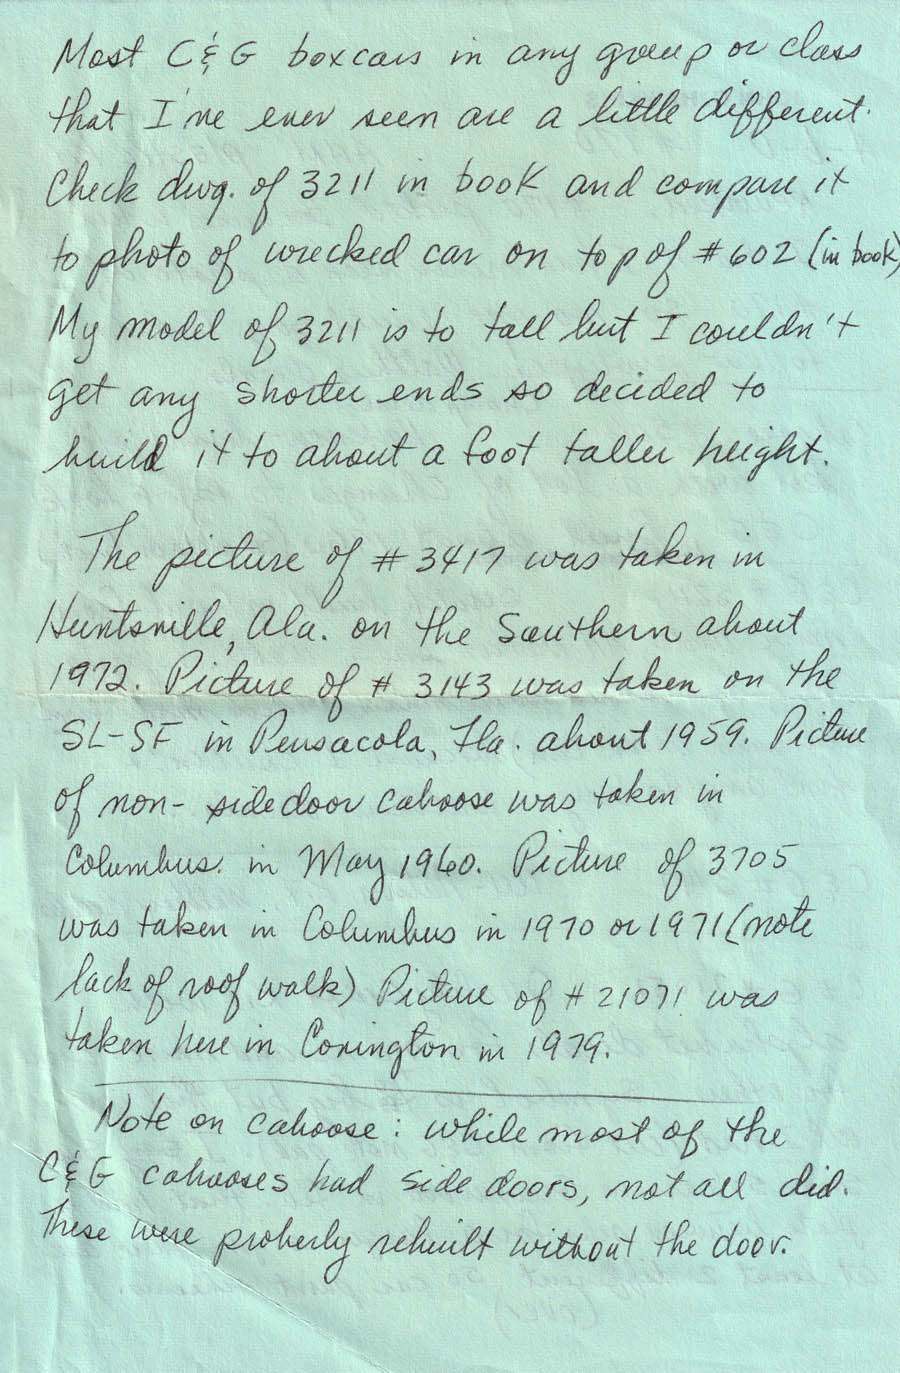 Most C&G boxcars in any group or class
that I've ever seen are a little different.
Check dwg. of 3211 in book and compare it
to photo of wrecked car on top of #602 (in book)
My model of 3211 is to tall but I couldn't
get any shorter ends so decided to
build it to about a foot taller height.
The picture of #3417 was taken in
Huntsville, Ala. on the Southern about
1972. Picture of #3143 was taken on the
SL-SF in Pensacola, Fla. about 1959. Picture
of non-sidedoor caboose was taken in
Columbus in May 1960. Picture of 3705
was taken in Columbus in 1970 or 1971 (note
lack of roof walk) Picture of #21071 was
taken here in Covington in 1979.
Note on caboose: while most of the
C&G cabooses had side doors, not all did.
These were proberly rebuilt without the door.